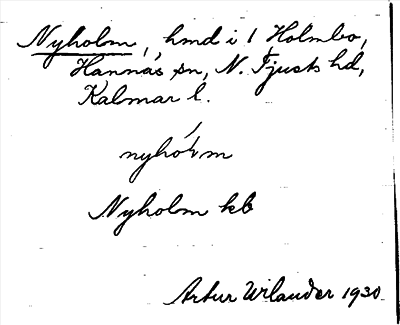 Nyholm, hmd i 1 Holmbo,
Hannäs sn, N. Tjusts hd,
Kalmar l.
Nyholm kb
Artur Wilander 1930